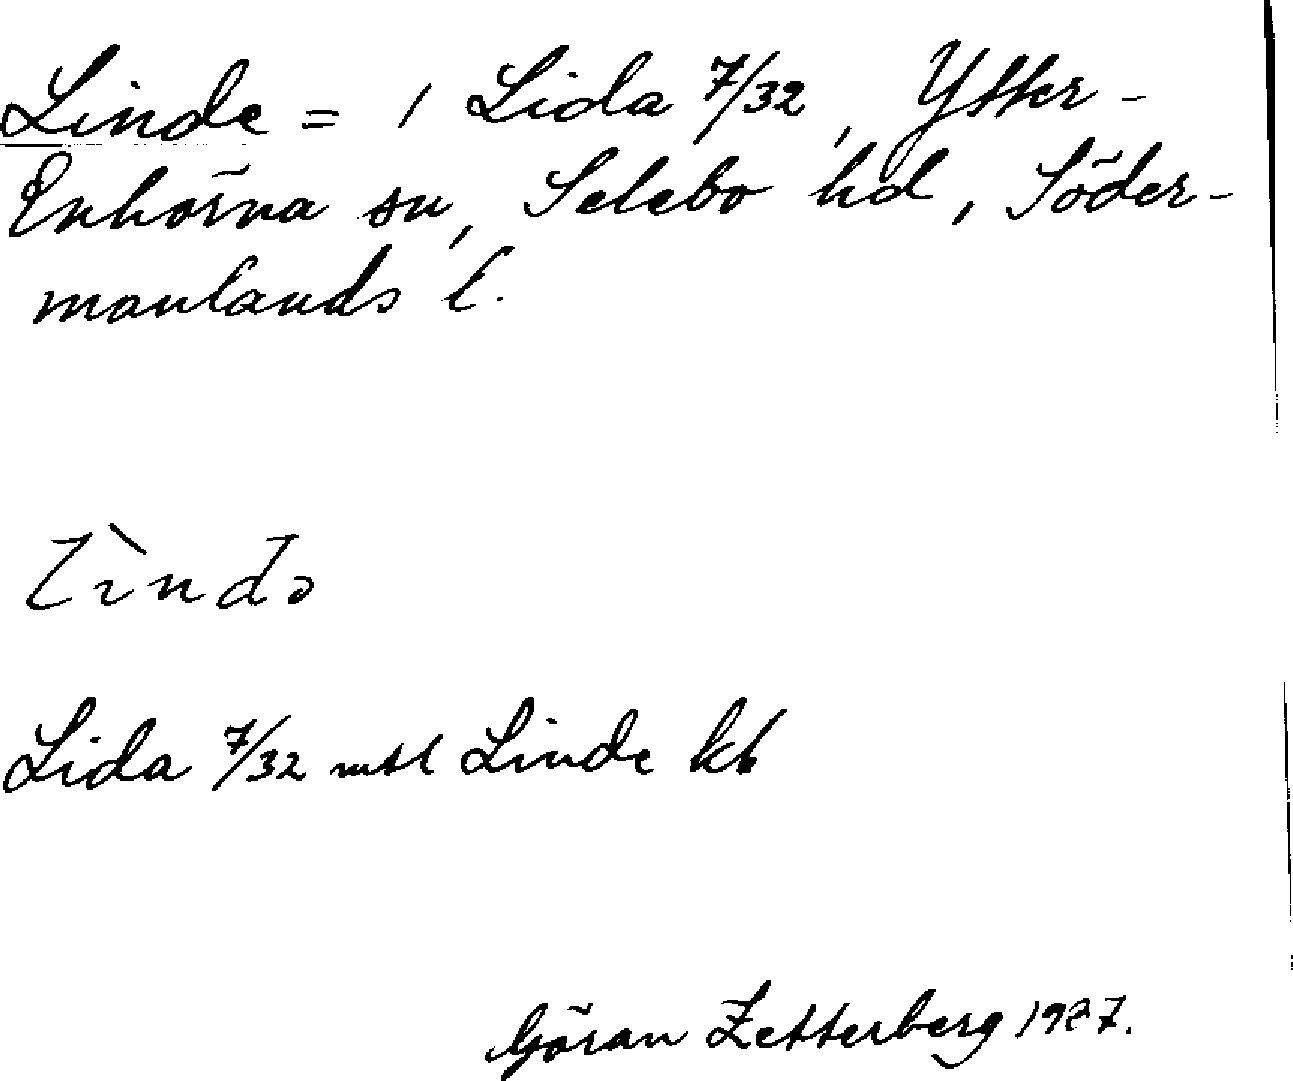 Linde = 1 Lida 7/32, Ytter-
Enhörna sn, Selebo hd, Söder-
manlands l.
lìndə
Lida 7/32 mtl Linde kb
Göran Zetterberg 1927.